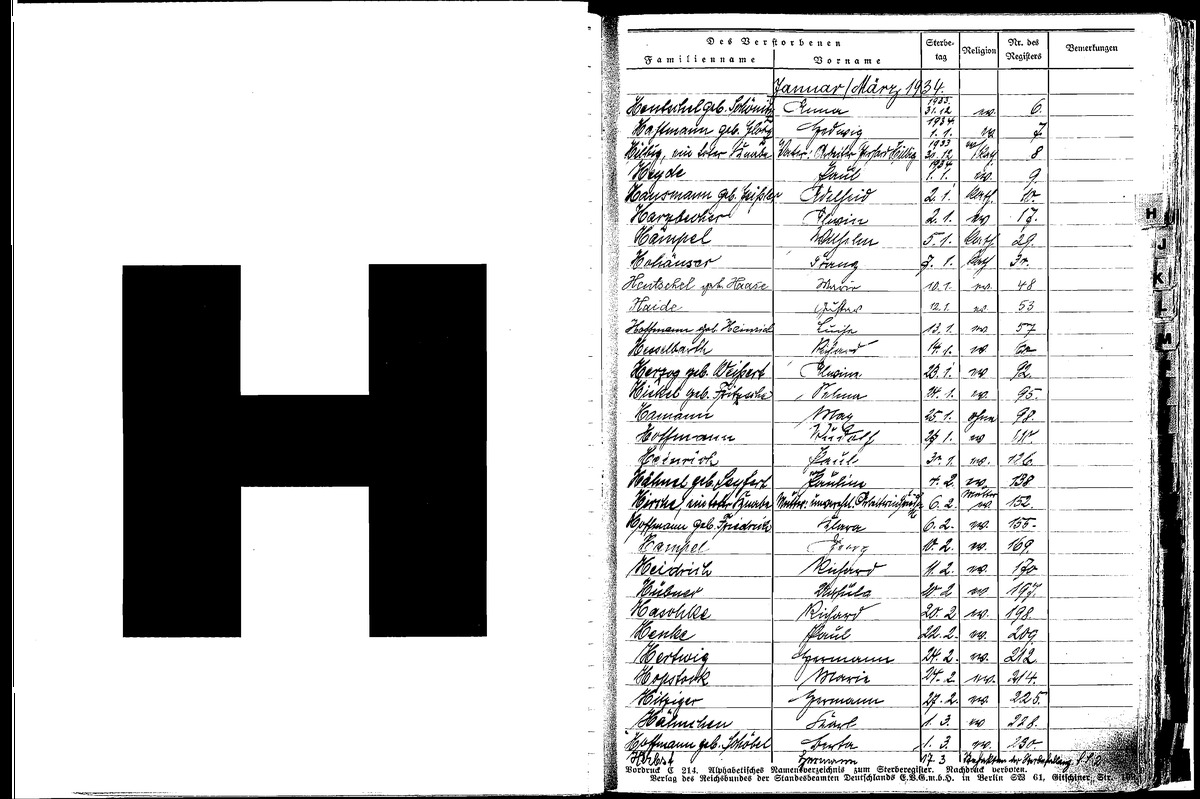 H
Des Verstorbenen Sterbe- Religion Nr. des Bemerkungen
Familienname Vorname tag Registers
Januar/März 1934.
Hentschel geb. Anna 1933. 31.12. ev. 6.
Hoffmann geb. Hedwig 1934. 1.1. ev. 7.
Hilbig, ein toter Knabe Vater: Arbeiter Gerhard Hilbig 1933 30.12. 8
Heyde Paul 1934 1.1. ev. 9
Hausmann geb. Geißler Adelheid 2.1. kath. 10.
Harzbecher Alwin 2.1. ev 17.
Hämpel Wilhelm 5.1. kath. 29.
Hohäuser Franz 7.1. kath 30.
Hentschel geb. Haase Marie 10.1. ev. 48
Haide Gustav 12.1. ev. 53
Hoffmann geb. Heinrich Luise 13.1. ev. 57
Hesselbarth Richard 14.1. ev. 60
Herzog geb. Weisert Alwine 23.1. ev 92.
Hickel geb. Fritzsche Selma 24.1. ev. 95.
Hamann Max 25.1. ohne 98.
Hoffmann Rudolf ev
Heinrich Paul 30.1. ev. 126.
Hähnel geb. Seyfert Pauline 4.2. ev. 138
ein toter Knabe Mutter: unverehel. Arbeiterin 6.2. Mutter ev. 152.
Hoffmann geb. Friedrich Klara 6.2. ev. 155.
Hampel Georg 10.2. ev. 169.
Heidrich Richard 11.2. ev. 170
Hübner Ursula 20.2 ev. 197.
Haschke Richard 20.2 ev. 198.
Henke Paul 22.2. ev. 209
Hertwig Hermann 24.2. ev. 212.
Hopstock Marie 24.2 ev. 214.
Hitziger Hermann 27.2 ev. 225.
Hähnchen Karl 1.3. ev 228.
Hoffmann geb. Schöbel Berta 1.3. ev. 230
Hermann 17.3
Vordruck C 214. Alphabetisches Namensverzeichnis zum Sterberegister. Nachdruck verboten.
Verlag des Reichsbundes der Standesbeamten Deutschlands E.V.G.m.b.H. in Berlin SW 61, Gitschiner Str.
H
J
K
L
M